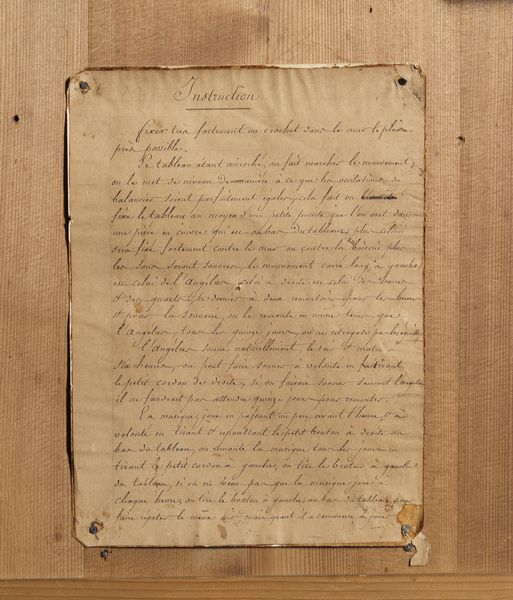 Instruction
fixer très fortement un crochet dans le mur le plus
près possible.
Le tableau étant accroché, on fait marcher le mouvement,
on le met de niveau de manière à ce que les oscilations du
balancier soient parfaitement egales, cela fait on
fixe le tableau au moyen d'une petite pointe que l'on met dans
une pièce en cuivre qui est au bas du tableau, plus celui-ci
sera fixé fortement contre le mur ou contre la boiserie plus
les sons seront sonores, le mouvement carré long à gauche
est celui de l'angélus, celui à droite est celui des heures
et des quarts, ce dernier à deux remontoirs pour les heures
et pour la sonnerie, on le remonte en même temps que
l'angélus tous les quinze jours, on ne retrograde pas les aiguilles
l'angélus sonne naturellement, le soir et matin
six heures, on peut faire sonner à volonté en tirant
le petit cordon de droite, si on faisait sonner souvent l'angelus
il ne faudrait pas attendre quinze jours pour remonter.
La musique, joue en passant un peu avant l'heure et à
volonté en tirant et repoussant le petit bouton à droite au
bas du tableau, on remonte la musique tous les jours en
tirant le petit cordon à gauche, on tire le bouton à gauche
du tableau, si on ne veut pas que la musique joue à
chaque heure, on tire le bouton à gauche au bas du tableau pour
faire répéter le même air, mais quant il a commencé à jouer